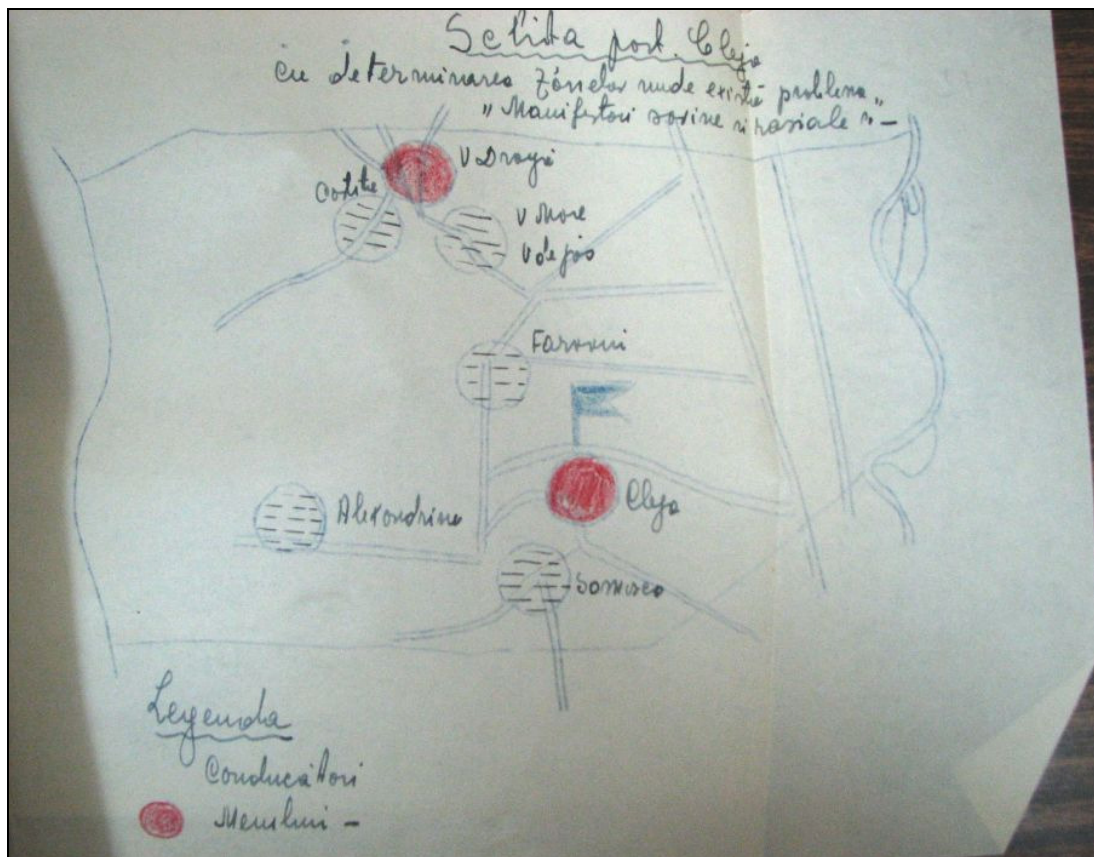 Schita post. Cleja
cu determinarea zónelor unde există problema „
„ Manifestari sovine si rasiale " –
V Dragă
Cotite
V Mare
V de jos
Faraoni
Cleja
Alexandrina
Somusca
Legenda
Conducători
Membrii –